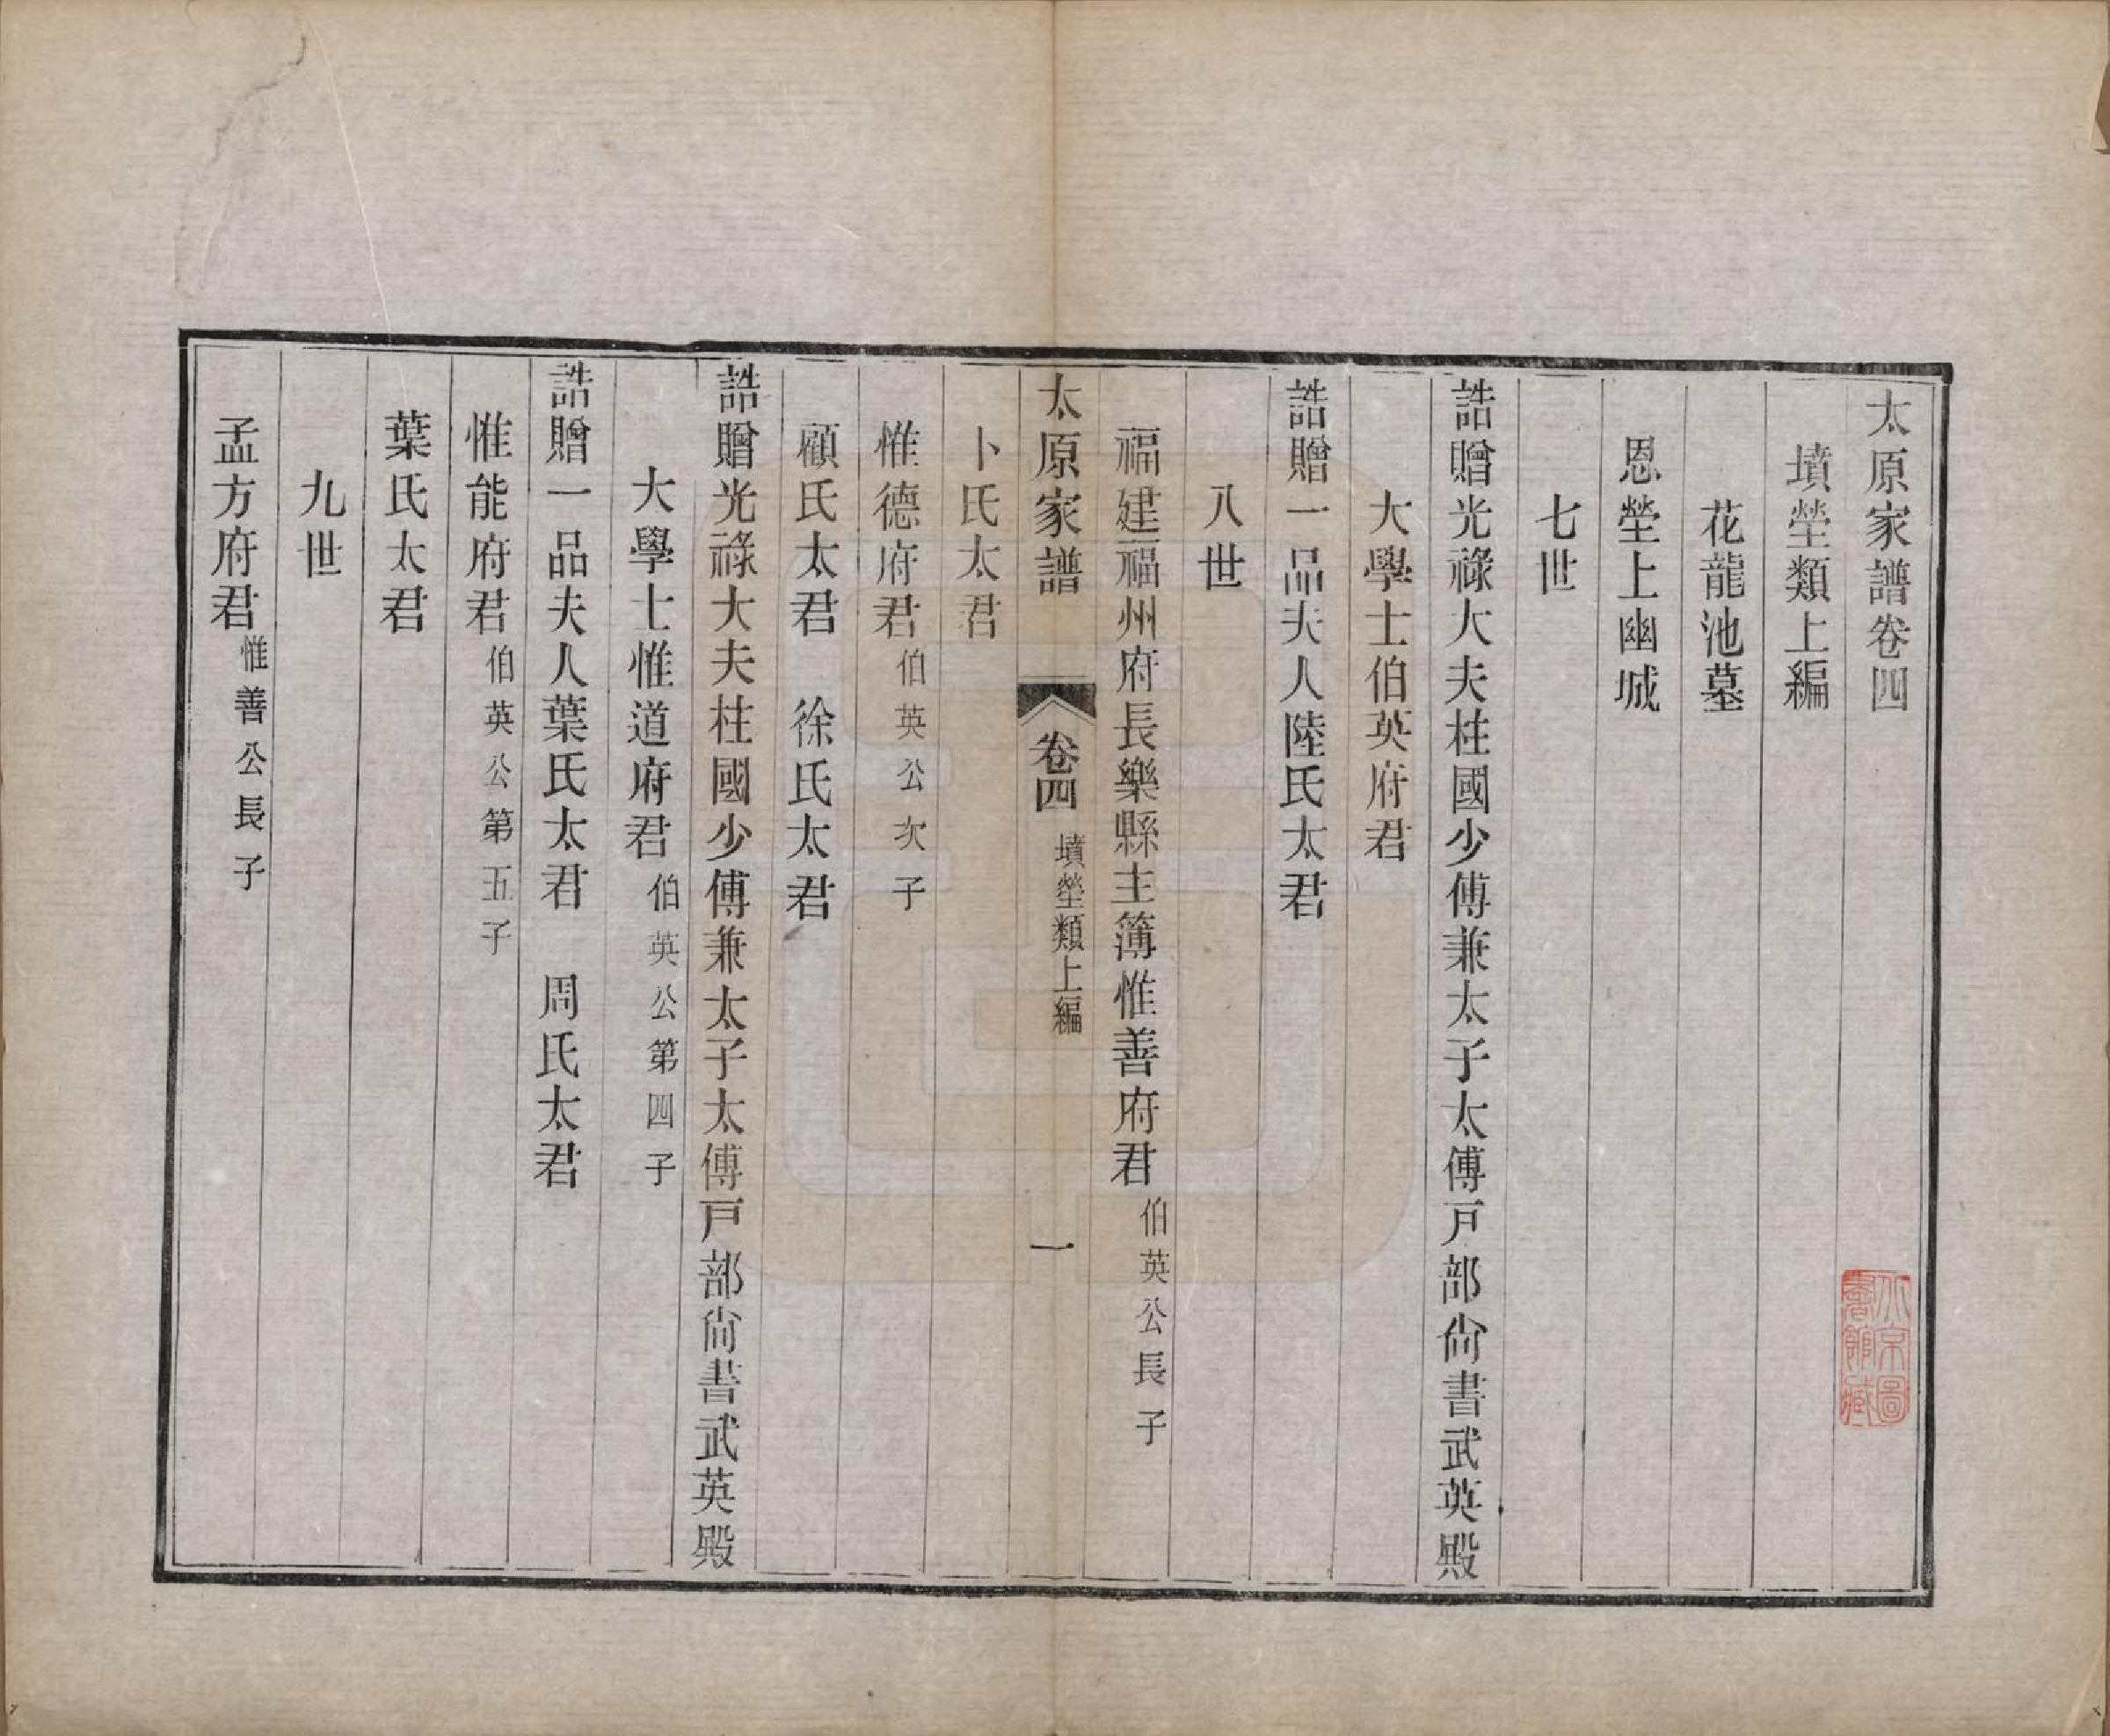 太原家譜卷四
墳塋類上編
花龍池墓
恩塋上幽城
七世
誥贈光祿大夫柱國少傅兼太子太傅戸部尚書武英殿
大學士伯英府君
誥贈一品夫人陸氏太君
八世
福建福州府長樂縣主簿惟善府君伯英公長子
太原家譜 卷四 墳塋類上編 一
卜氏太君
惟德府君伯英公次子
顧氏太君 徐氏太君
誥贈光祿大夫柱國少傅兼太子太傅戸部尚書武英殿
大學士惟道府君伯英公第四子
誥贈一品夫人葉氏太君 周氏太君
惟能府君伯英公第五子
葉氏太君
九世
孟方府君惟善公長子
北京圖
書館藏